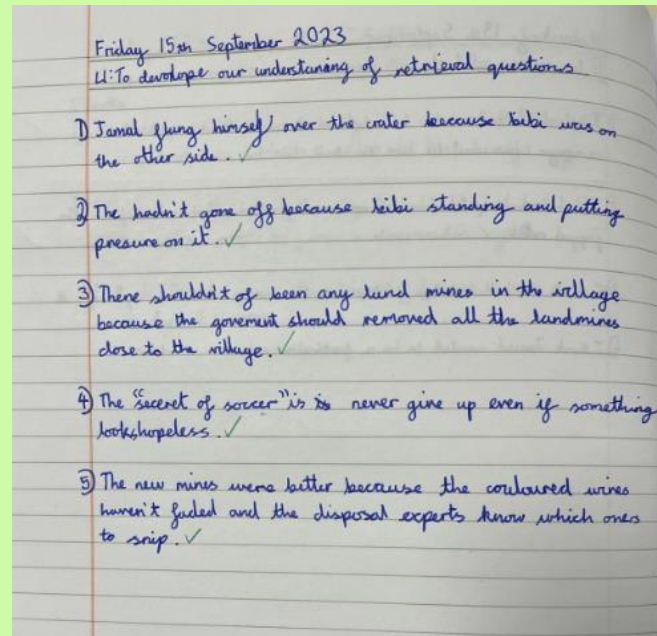 Friday 15th September 2023
LI: To devolope our understaning of retrieval questions
1) Jamal flung himself over the crater because bibi was on
the other side. ✓
2) The hadn't gone off because bibi standing and putting
presure on it. ✓
3) There shouldn't of been any land mines in the village
because the goverment should removed all the landmines
close to the village. ✓
4) The "seceret of soccer" is never give up even if something
lookshopeless. ✓
5) The new mines were better because the couloured wires
haven't faded and the disposal experts know which ones
to snip. ✓